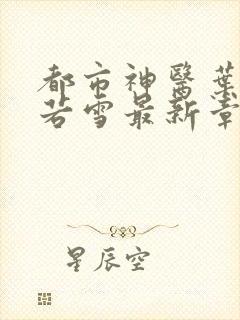 都市神醫葉
若雪最新章
星辰空